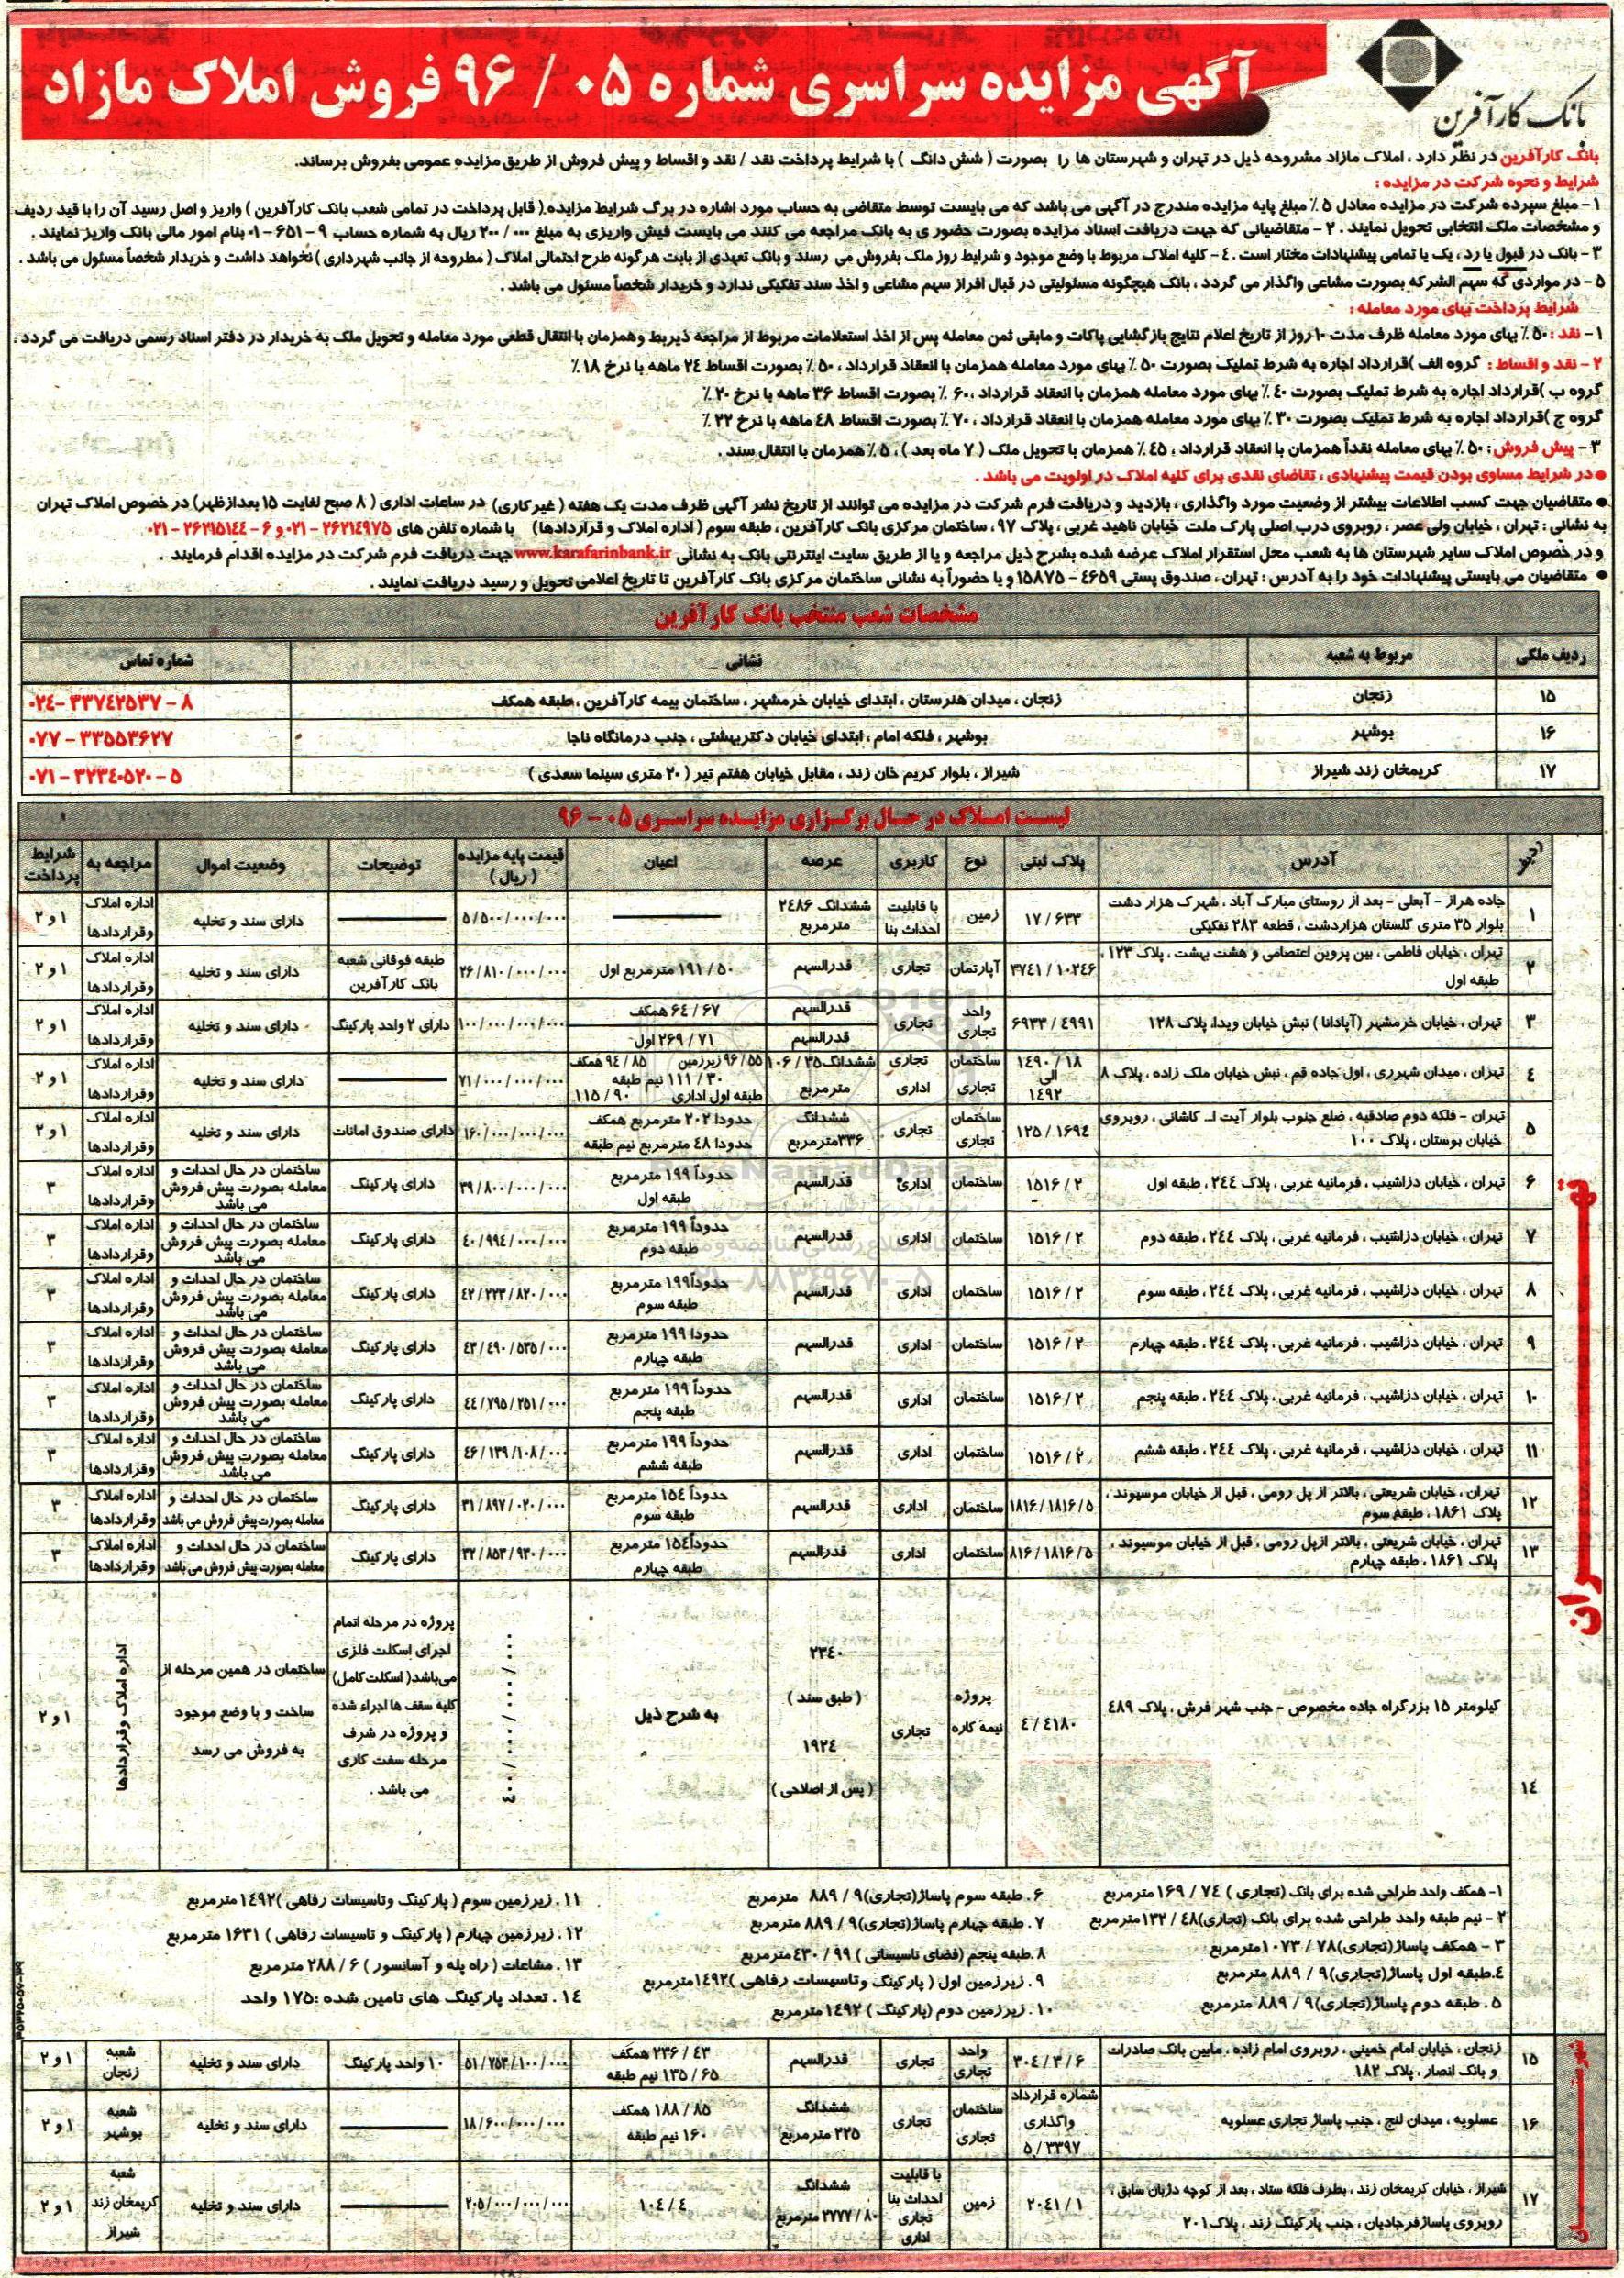 بانک کارآفرین
آگهی مزایده سراسری شماره ۰۵ / ۹۶ فروش املاک مازاد
بانک کارآفرین در نظر دارد ، املاک مازاد مشروحه ذیل در تهران و شهرستان ها را بصورت ( شش دانگ ) با شرایط پرداخت نقد / نقد و اقساط و پیش فروش از طریق مزایده عمومی بفروش برساند.
شرایط و نحوه شرکت در مزایده :
۱- مبلغ سپرده شرکت در مزایده معادل ۵ ٪ مبلغ پایه مزایده مندرج در آگهی می باشد که می بایست توسط متقاضی به حساب مورد اشاره در برگ شرایط مزایده ( قابل پرداخت در تمامی شعب بانک کارآفرین ) واریز و اصل رسید آن را با قید ردیف
و مشخصات ملک انتخابی تحویل نمایند . ۲ - متقاضیانی که جهت دریافت اسناد مزایده بصورت حضوری به بانک مراجعه می کنند می بایست فیش واریزی به مبلغ ۲۰۰/۰۰۰ ریال به شماره حساب ۹ - ۶۵۱ - ۰۱ بنام امور مالی بانک واریز نمایند .
۳ - بانک در قبول یا رد ، یک یا تمامی پیشنهادات مختار است . ۴ - کلیه املاک مربوط با وضع موجود و شرایط روز ملک بفروش می رسند و بانک تعهدی از بابت هرگونه طرح احتمالی املاک ( مطروحه از جانب شهرداری ) نخواهد داشت و خریدار شخصاً مسئول می باشد .
۵ - در مواردی که سهم الشرکه بصورت مشاعی واگذار می گردد ، بانک هیچگونه مسئولیتی در قبال افراز سهم مشاعی و اخذ سند تفکیکی ندارد و خریدار شخصاً مسئول می باشد .
شرایط پرداخت بهای مورد معامله :
۱- نقد : ۵۰ ٪ بهای مورد معامله ظرف مدت ۱۰ روز از تاریخ اعلام نتایج بازگشایی پاکات و مابقی ثمن معامله پس از اخذ استعلامات مربوط از مراجعه ذیربط و همزمان با انتقال قطعی مورد معامله و تحویل ملک به خریدار در دفتر اسناد رسمی دریافت می گردد .
۲ - نقد و اقساط : گروه الف )قرارداد اجاره به شرط تملیک بصورت ۵۰ ٪ بهای مورد معامله همزمان با انعقاد قرارداد ، ۵۰ ٪ بصورت اقساط ۲۴ ماهه با نرخ ۱۸ ٪
گروه ب )قرارداد اجاره به شرط تملیک بصورت ۴۰ ٪ بهای مورد معامله همزمان با انعقاد قرارداد ، ۶۰ ٪ بصورت اقساط ۳۶ ماهه با نرخ ۲۰ ٪
گروه ج )قرارداد اجاره به شرط تملیک بصورت ۳۰ ٪ بهای مورد معامله همزمان با انعقاد قرارداد ، ۷۰ ٪ بصورت اقساط ۴۸ ماهه با نرخ ۲۲ ٪
۳ - پیش فروش : ۵۰ ٪ بهای معامله نقداً همزمان با انعقاد قرارداد ، ۴۵ ٪ همزمان با تحویل ملک ( ۷ ماه بعد ) ، ۵ ٪ همزمان با انتقال سند .
● در شرایط مساوی بودن قیمت پیشنهادی ، تقاضای نقدی برای کلیه املاک در اولویت می باشد .
● متقاضیان جهت کسب اطلاعات بیشتر از وضعیت مورد واگذاری ، بازدید و دریافت فرم شرکت در مزایده می توانند از تاریخ نشر آگهی ظرف مدت یک هفته ( غیرکاری ) در ساعات اداری ( ۸ صبح لغایت ۱۵ بعدازظهر ) در خصوص املاک تهران
به نشانی : تهران ، خیابان ولی عصر ، روبروی درب اصلی پارک ملت خیابان ناهید غربی ، پلاک ۹۷ ، ساختمان مرکزی بانک کارآفرین ، طبقه سوم ( اداره املاک و قراردادها ) با شماره تلفن های ۲۶۲۱۴۹۷۵ - ۰۲۱ و ۶ - ۲۶۲۱۵۱۴۴ - ۰۲۱
و در خصوص املاک سایر شهرستان ها به شعب محل استقرار املاک عرضه شده بشرح ذیل مراجعه و یا از طریق سایت اینترنتی بانک به نشانی www.karafarinbank.ir جهت دریافت فرم شرکت در مزایده اقدام فرمایند .
● متقاضیان می بایستی پیشنهادات خود را به آدرس : تهران ، صندوق پستی ۴۶۵۹ - ۱۵۸۷۵ و یا حضوراً به نشانی ساختمان مرکزی بانک کارآفرین تا تاریخ اعلامی تحویل و رسید دریافت نمایند .
مشخصات شعب منتخب بانک کارآفرین
ردیف ملکی مربوط به شعبه نشانی شماره تماس
۱۵ زنجان زنجان ، میدان هنرستان ، ابتدای خیابان خرمشهر ، ساختمان بیمه کارآفرین ، طبقه همکف ۸ - ۳۳۷۴۲۵۳۷ - ۰۲۴
۱۶ بوشهر بوشهر ، فلکه امام ، ابتدای خیابان دکتر بهشتی ، جنب درمانگاه ناجا ۳۳۵۵۳۶۲۷ - ۰۷۷
۱۷ کریمخان زند شیراز شیراز ، بلوار کریم خان زند ، مقابل خیابان هفتم تیر ( ۲۰ متری سینما سعدی ) ۵ - ۳۲۳۴۰۵۲۰ - ۰۷۱
لیست املاک در حال برگزاری مزایده سراسری ۰۵ - ۹۶
ردیف آدرس پلاک ثبتی نوع کاربری عرصه اعیان قیمت پایه مزایده ( ریال ) توضیحات وضعیت اموال مراجعه به شرایط پرداخت
تهران
۱ جاده هراز - آبعلی - بعد از روستای مبارک آباد ، شهرک هزار دشت بلوار ۳۵ متری گلستان هزاردشت ، قطعه ۲۸۳ تفکیکی ۶۳۳ / ۱۷ زمین با قابلیت احداث بنا ششدانگ ۲۴۸۶ مترمربع ۵/۵۰۰/۰۰۰/۰۰۰ دارای سند و تخلیه اداره املاک وقراردادها ۱ و ۲
۲ تهران ، خیابان فاطمی ، بین پروین اعتصامی و هشت بهشت ، پلاک ۱۲۳ ، طبقه اول ۱۰۲۴۶ / ۳۷۴۱ آپارتمان تجاری قدرالسهم ۵۰ / ۱۹۱ مترمربع اول ۲۶/۸۱۰/۰۰۰/۰۰۰ طبقه فوقانی شعبه بانک کارآفرین دارای سند و تخلیه اداره املاک وقراردادها ۱ و ۲
۳ تهران ، خیابان خرمشهر (آپادانا) نبش خیابان ویدا، پلاک ۱۲۸ ۴۹۹۱ / ۶۹۳۳ واحد تجاری تجاری قدرالسهم ۶۷ / ۶۴ همکف قدرالسهم ۷۱ / ۲۶۹ اول ۱۰۰/۰۰۰/۰۰۰/۰۰۰ دارای ۲ واحد پارکینگ دارای سند و تخلیه اداره املاک وقراردادها ۱ و ۲
۴ تهران ، میدان شهرری ، اول جاده قم ، نبش خیابان ملک زاده ، پلاک ۸ ۱۸ / ۱۴۹۰ الی ۱۴۹۲ ساختمان تجاری تجاری اداری ششدانگ ۳۵ / ۱۰۶ مترمربع ۵۵ / ۹۶ زیرزمین ۸۵ / ۹۴ همکف ۳۰ / ۱۱۱ نیم طبقه طبقه اول اداری ۹۰ / ۱۱۵ ۷۱/۰۰۰/۰۰۰/۰۰۰ دارای سند و تخلیه اداره املاک وقراردادها ۱ و ۲
۵ تهران - فلکه دوم صادقیه ، ضلع جنوب بلوار آیت ا... کاشانی ، روبروی خیابان بوستان ، پلاک ۱۰۰ ۱۶۹۴ / ۱۲۵ ساختمان تجاری تجاری ششدانگ ۳۳۶مترمربع حدودا ۲۰۲ مترمربع همکف حدودا ۴۸ مترمربع نیم طبقه ۱۶۰/۰۰۰/۰۰۰/۰۰۰ دارای صندوق امانات دارای سند و تخلیه اداره املاک وقراردادها ۱ و ۲
۶ تهران ، خیابان دزاشیب ، فرمانیه غربی ، پلاک ۲۴۴ ، طبقه اول ۲ / ۱۵۱۶ ساختمان اداری قدرالسهم حدوداً ۱۹۹ مترمربع طبقه اول ۳۹/۸۰۰/۰۰۰/۰۰۰ دارای پارکینگ ساختمان در حال احداث و معامله بصورت پیش فروش می باشد اداره املاک وقراردادها ۳
۷ تهران ، خیابان دزاشیب ، فرمانیه غربی ، پلاک ۲۴۴ ، طبقه دوم ۲ / ۱۵۱۶ ساختمان اداری قدرالسهم حدوداً ۱۹۹ مترمربع طبقه دوم ۴۰/۹۹۴/۰۰۰/۰۰۰ دارای پارکینگ ساختمان در حال احداث و معامله بصورت پیش فروش می باشد اداره املاک وقراردادها ۳
۸ تهران ، خیابان دزاشیب ، فرمانیه غربی ، پلاک ۲۴۴ ، طبقه سوم ۲ / ۱۵۱۶ ساختمان اداری قدرالسهم حدوداً۱۹۹ مترمربع طبقه سوم ۴۲/۲۲۳/۸۲۰/۰۰۰ دارای پارکینگ ساختمان در حال احداث و معامله بصورت پیش فروش می باشد اداره املاک وقراردادها ۳
۹ تهران ، خیابان دزاشیب ، فرمانیه غربی ، پلاک ۲۴۴ ، طبقه چهارم ۲ / ۱۵۱۶ ساختمان اداری قدرالسهم حدودا ۱۹۹ مترمربع طبقه چهارم ۴۳/۴۹۰/۵۳۵/۰۰۰ دارای پارکینگ ساختمان در حال احداث و معامله بصورت پیش فروش می باشد اداره املاک وقراردادها ۳
۱۰ تهران ، خیابان دزاشیب ، فرمانیه غربی ، پلاک ۲۴۴ ، طبقه پنجم ۲ / ۱۵۱۶ ساختمان اداری قدرالسهم حدوداً ۱۹۹ مترمربع طبقه پنجم ۴۴/۷۹۵/۲۵۱/۰۰۰ دارای پارکینگ ساختمان در حال احداث و معامله بصورت پیش فروش می باشد اداره املاک وقراردادها ۳
۱۱ تهران ، خیابان دزاشیب ، فرمانیه غربی ، پلاک ۲۴۴ ، طبقه ششم ۲ / ۱۵۱۶ ساختمان اداری قدرالسهم حدوداً ۱۹۹ مترمربع طبقه ششم ۴۶/۱۳۹/۱۰۸/۰۰۰ دارای پارکینگ ساختمان در حال احداث و معامله بصورت پیش فروش می باشد اداره املاک وقراردادها ۳
۱۲ تهران ، خیابان شریعتی ، بالاتر از پل رومی ، قبل از خیابان موسیوند ، پلاک ۱۸۶۱ ، طبقه سوم ۵ / ۱۸۱۶ / ۱۸۱۶ ساختمان اداری قدرالسهم حدوداً ۱۵۴ مترمربع طبقه سوم ۳۱/۸۹۷/۰۲۰/۰۰۰ دارای پارکینگ ساختمان در حال احداث و معامله بصورت پیش فروش می باشد اداره املاک وقراردادها ۳
۱۳ تهران ، خیابان شریعتی ، بالاتر ازپل رومی ، قبل از خیابان موسیوند ، پلاک ۱۸۶۱ ، طبقه چهارم ۵ / ۱۸۱۶ / ۸۱۶ ساختمان اداری قدرالسهم حدوداً۱۵۴ مترمربع طبقه چهارم ۳۲/۸۵۳/۹۳۰/۰۰۰ دارای پارکینگ ساختمان در حال احداث و معامله بصورت پیش فروش می باشد اداره املاک وقراردادها ۳
۱۴ کیلومتر ۱۵ بزرگراه جاده مخصوص - جنب شهر فرش ، پلاک ۴۸۹ ۴۱۸۰ / ۴ پروژه نیمه کاره تجاری ۲۳۴۰ ( طبق سند ) ۱۹۲۴ ( پس از اصلاحی ) به شرح ذیل ۴۰۰/۰۰۰/۰۰۰/۰۰۰ پروژه در مرحله اتمام اجرای اسکلت فلزی می‌باشد( اسکلت کامل) کلیه سقف ها اجراء شده و پروژه در شرف مرحله سفت کاری می باشد . ساختمان در همین مرحله از ساخت و با وضع موجود به فروش می رسد اداره املاک وقراردادها ۱ و ۲
۱- همکف واحد طراحی شده برای بانک (تجاری ) ۷۴ / ۱۶۹ مترمربع
۲ - نیم طبقه واحد طراحی شده برای بانک (تجاری)۴۸ / ۱۳۲مترمربع
۳ - همکف پاساژ(تجاری)۷۸ / ۱۰۷۳مترمربع
۴.طبقه اول پاساژ(تجاری)۹ / ۸۸۹ مترمربع
۵ . طبقه دوم پاساژ(تجاری)۹ / ۸۸۹ مترمربع
۶ . طبقه سوم پاساژ(تجاری)۹ / ۸۸۹ مترمربع
۷ . طبقه چهارم پاساژ(تجاری)۹ / ۸۸۹ مترمربع
۸ .طبقه پنجم (فضای تاسیساتی ) ۹۹ / ۴۳۰مترمربع
۹ . زیرزمین اول ( پارکینگ وتاسیسات رفاهی )۱۴۹۲مترمربع
۱۰ . زیرزمین دوم (پارکینگ ) ۱۴۹۲ مترمربع
۱۱ . زیرزمین سوم ( پارکینگ وتاسیسات رفاهی )۱۴۹۲مترمربع
۱۲ . زیرزمین چهارم ( پارکینگ و تاسیسات رفاهی ) ۱۶۳۱ مترمربع
۱۳ . مشاعات ( راه پله و آسانسور ) ۶ / ۲۸۸ مترمربع
۱۴ . تعداد پارکینگ های تامین شده :۱۷۵ واحد
شهرستان
۱۵ زنجان ، خیابان امام خمینی ، روبروی امام زاده ، مابین بانک صادرات و بانک انصار ، پلاک ۱۸۲ ۶ / ۳ / ۳۰۴ واحد تجاری تجاری قدرالسهم ۴۳ / ۲۳۶ همکف ۶۵ / ۱۳۵ نیم طبقه ۵۱/۷۵۳/۱۰۰/۰۰۰ ۱۰ واحد پارکینگ دارای سند و تخلیه شعبه زنجان ۱ و ۲
۱۶ عسلویه ، میدان لنج ، جنب پاساژ تجاری عسلویه شماره قرارداد واگذاری ۳۳۹۷ / ۵ ساختمان تجاری تجاری ششدانگ ۲۲۵ مترمربع ۸۵ / ۱۸۸ همکف ۱۶۰ نیم طبقه ۱۸/۶۰۰/۰۰۰/۰۰۰ دارای سند و تخلیه شعبه بوشهر ۱ و ۲
۱۷ شیراز ، خیابان کریمخان زند ، بطرف فلکه ستاد ، بعد از کوچه دژبان سابق ، روبروی پاساژفرجادیان ، جنب پارکینگ زند ، پلاک۲۰۱ ۱ / ۲۰۴۱ زمین با قابلیت احداث بنا تجاری اداری ششدانگ ۸۰ / ۲۷۷۷ مترمربع ۴ / ۱۰۴ ۲۰۵/۰۰۰/۰۰۰/۰۰۰ دارای سند و تخلیه شعبه کریمخان زند شیراز ۱ و ۲